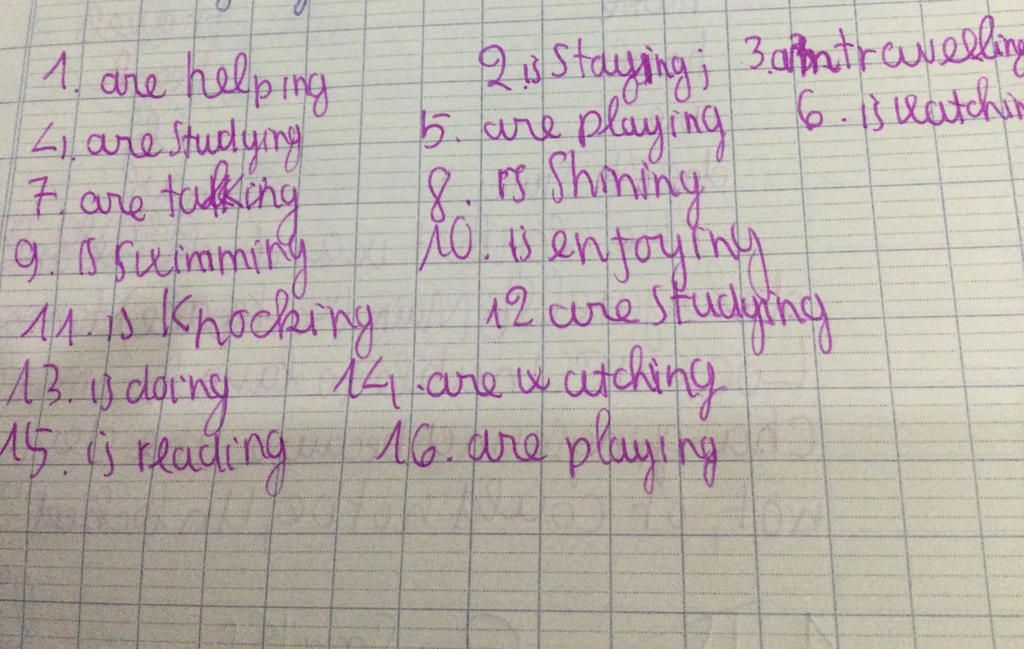 1. are helping 2. is staying; 3. am traveeling
4. are studying 5. are playing 6. is watchin
7. are talking 8. is shining
9. is swimming 10. is enjoying
11. is knocking 12 are studying
13. is doing 14. are watching
15. is reading 16. are playing